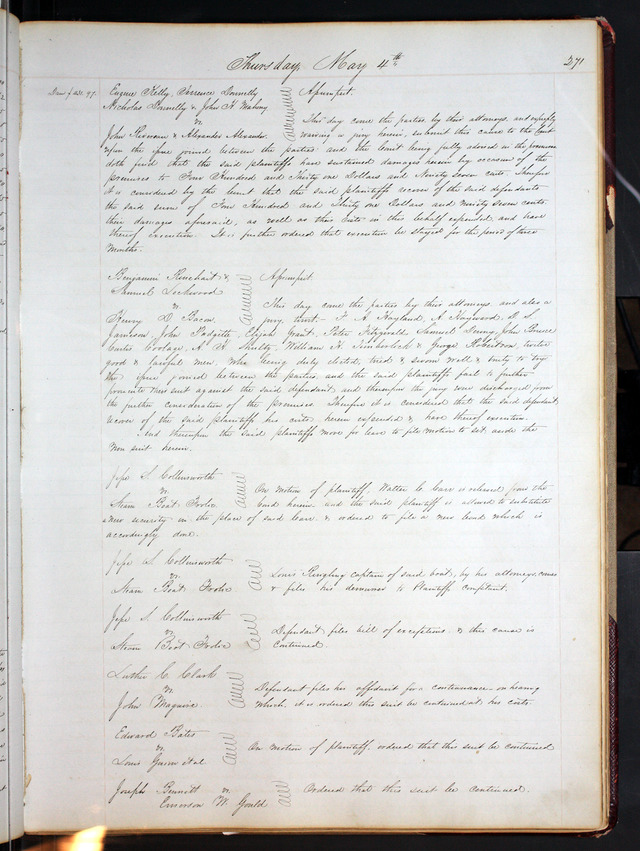 Thursday, May 4th
271
Eugene Kelly, Terrence Donnelly
Nicholas Donnelly & John H Mahony
vs
John Thomson & Alexander Alexander
Assumpsit
This day come the parties by their attorneys, and expressly
waiving a jury herein, submit this cause to the Court
upon the issue joined between the parties and the Court being fully advised in the premises
doth find that the said plaintiffs have sustained damages herein by occasion of the
premises to Four Hundred and Thirty one Dollars and Ninety seven cents. Therefore
it is considered by the Court that the said plaintiffs recover of the said defendants
the said sum of Four Hundred and Thirty one Dollars and ninety seven cents
their damages aforesaid, as well as their Costs in this behalf expended, and have
thereof execution. It is further ordered that execution be stayed for the period of three
Months.
Benjamin Rinehart &
Samuel Lockwood
vs
Henry D. Bacon
Assumpsit.
This day come the parties by their attorneys and also a
jury to wit F. A. Hayland, A Haywood, D. S.
Jameson, John Padgett, Elijah Grant, Peter Fitzgerald, Samuel Dunn, John Pierce
Carlos Coolage, A. H. Shultz, William H. Kimberlick & George Robertson, twelve
good & lawful men, who being duly elected, tried & sworn well & truly to try
the issue joined between the parties, and the said plaintiffs fail to further
prosecute their suit against the said defendant, and thereupon the jury were discharged from
the further consideration of the premises. Therefore it is considered that the said defendant
recover of the said plaintiffs his costs herein expended & have thereof execution.
And thereupon the said plaintiffs move for leave to file motion to set aside the
Non suit herein.
Jesse S. Collinsworth
vs
Steam Boat Frolic
On motion of plaintiff, Walter C. Carr is released from the
bond herein and the said plaintiff is allowed to substitute
a new security in the place of said Carr & ordered to file a new bond which is
accordingly done.
Jesse S. Collinsworth
vs
Steam Boat Frolic
Louis Ringling captain of said boat, by his attorneys, comes
& files his demurrer to Plaintiffs complaint.
Jesse S. Collinsworth
vs
Steam Boat Frolic
Defendant files bill of exceptions & this cause is
continued.
Luther C. Clark
vs
John Maguire
Defendant files his affidavit for a continuance on hearing
which, it is ordered this suit be continued at his costs.
Edward Bates
vs
Louis et al
On motion of plaintiff, ordered that this suit be continued
Joseph Bennett
vs
Emerson W. Gould
Ordered that this suit be continued.